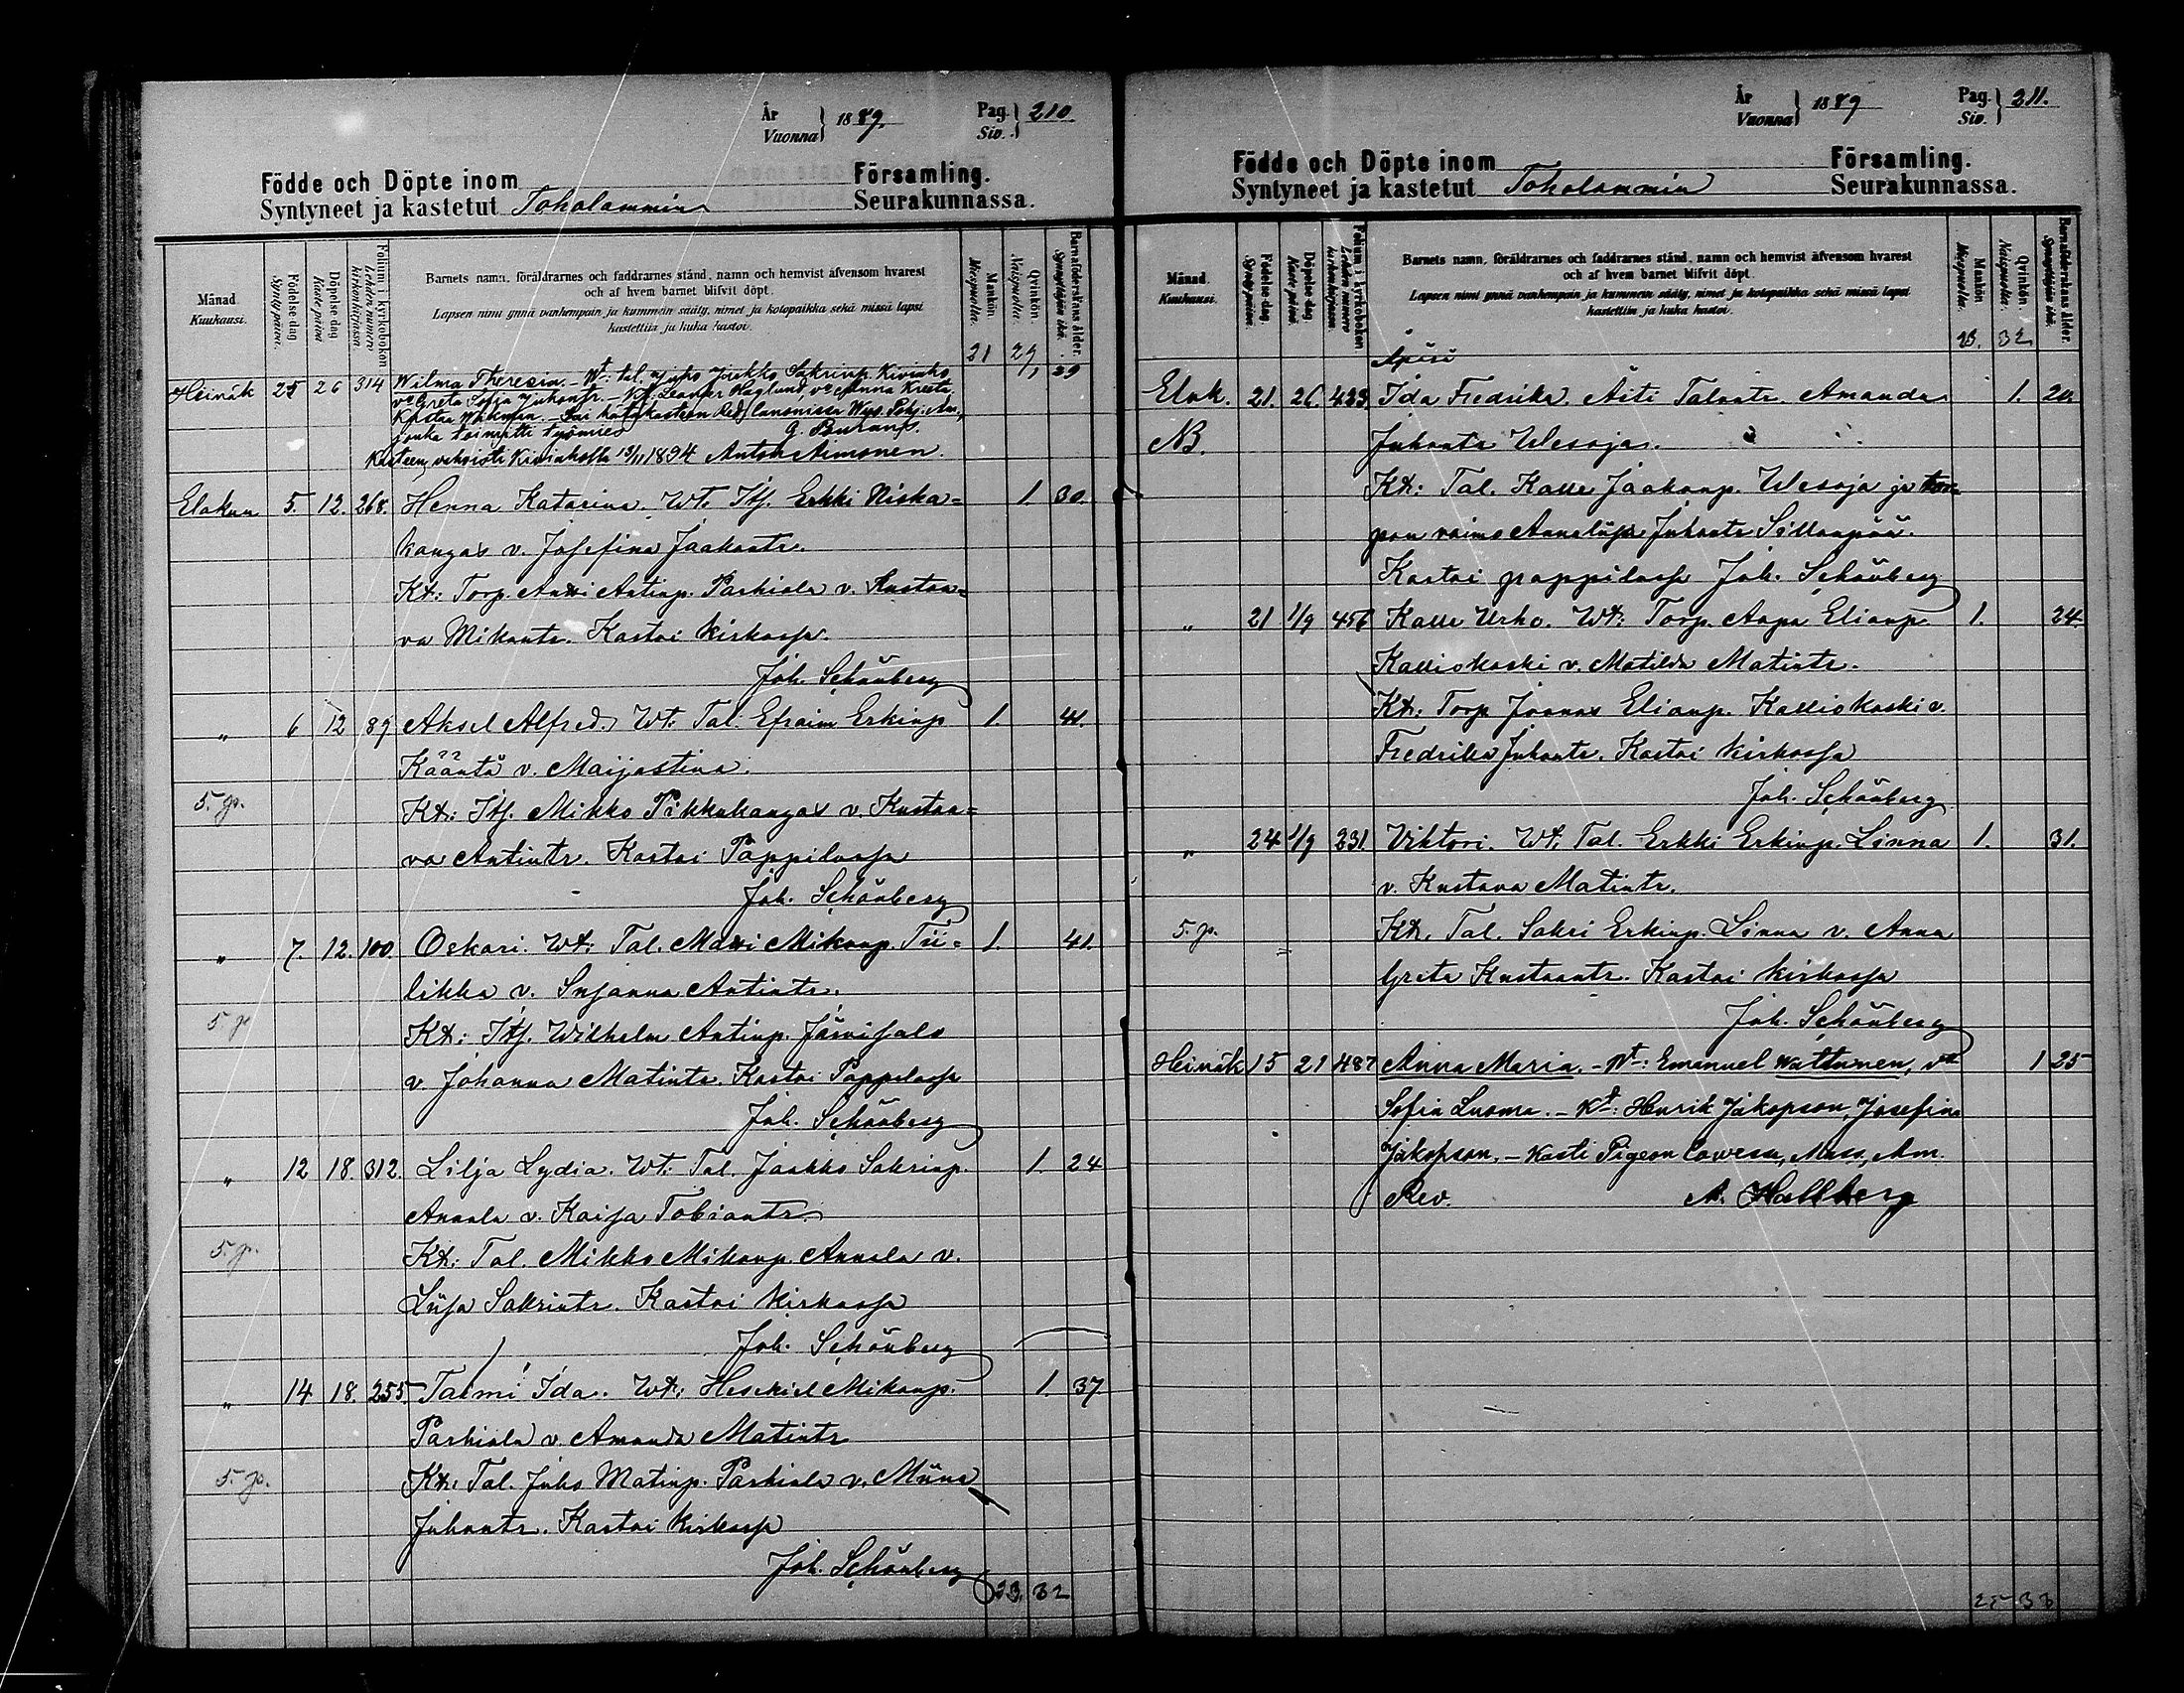 År
Vuonna 1889. Pag. Siv. 210
Födde och Döpte inom Församling.
Syntyneet ja kastetut Toholammin Seurakunnassa.
Månad. Kuukausi.
Födelse-dag Syntypäivä.
Döpelse-dag Kastepäivä
Folium i kyrkoboken Lehden numero kirkonkirjassa.
Barnets namn, föräldrarnes och faddrarnes stånd, namn och hemvist äfvensom hvarest
och af hvem barnet blifvit döpt.
Lapsen nimi ynnä vanhempain ja kummein sääty, nimet ja kotopaikka sekä missä lapsi
kastettiin ja kuka kastoi.
Mankön Miespuolta.
Qvinkön. Naispuolta.
Barnaföderskans ålder. Synnyttäjän ikä.
21 29
Heinäk 25 26 314 Wilma Theresia. - Wt: tal. Juho Jaakko Sakrinp. Kiviaho 1 29
vo Greta Sofia Juhontr. - Kt. Leander Haglund, vo Anna Kreeta
jonka toimitti työmies G. Burans.
Kasteen vahvisti Kiviaholla 13/11 1894 Anton Aimonen.
Elokuu 5. 12. 268. Henna Katarina. Wt. Itj. Erkki Niska= 1. 30.
kangas v. Josefina Jaakontr.
Kt: Torp. Antti Antinp. Parhiala v. Kustaa=
va Mikontr. Kastoi kirkossa
Joh. Schönberg
" 6 12 89 Aksel Alfred. Wt: Tal. Efraim Erkinp 1. 41.
Kääntä v. Maijastina.
5. p. Kt: Itj. Mikko Pikkukangas v. Kustaa=
va Antintr. Kastoi Pappilassa
Joh. Schönberg
" 7. 12. 100. Oskari. Wt: Tal. Matti Mikonp. Tii= 1. 41.
likka v. Susanna Antintr.
5 p Kt: Itj. Wilhelm Antinp. Järvisalo
v Johanna Matintr. Kastoi Pappilassa
Joh. Schönberg
" 12 18. 312. Lilja Lydia. Wt: Tal. Jaakko Sakrinp. 1. 24
Annala v. Kaisa Tobiantr.
5. p. Kt: Tal. Mikko Mikonp. Annala v.
Liisa Sakrintr. Kastoi kirkossa
Joh. Schönberg
" 14 18. 255. Taimi Ida. Wt: Heskiel Mikonp. 1. 37
Parhiala v. Amanda Matintr
5. p. Kt: Tal. Juho Matinp. Parhiala v. Miina
Juhontr. Kastoi kirkossa
Joh. Schönberg
23. 32
År
Vuonna 1889 Pag. Siv. 211.
Födde och Döpte inom Församling.
Syntyneet ja kastetut Toholammin Seurakunnassa.
Månad. Kuukausi.
Födelse-dag. Syntypäivä.
Döpelse-dag. Kastepäivä.
Folium i kyrkoboken Lehden numero kirkonkirjassa.
Barnets namn, föräldrarnes och faddrarnes stånd, namn och hemvist äfvensom hvarest
och af hvem barnet blifvit döpt.
Lapsen nimi ynnä vanhempain ja kummein sääty, nimet ja kotopaikka sekä missä lapsi
kastettiin ja kuka kastoi.
Mankön Miespuolta.
Qvinkön. Naispuolta.
Barnaföderskans ålder. Synnyttäjän ikä.
23. 32
Äpärä
Elok. 21. 26. 423 Ida Fredrika. Äiti Talontr. Amanda 1. 20.
NB. Juhontr Wesoja.
Kt: Tal. Kalle Jaakonp. Wesoja ja tor=
pan vaimo Annaliisa Juhontr Sillanpää.
Kastoi pappilassa Joh. Schönberg
" 21 1/9 456 Kalle Urho. Wt: Torp. Aapo Elianp 1. 24.
Kalliokoski v. Matilda Matintr.
Kt: Torp Joonas Elianp. Kalliokoski v.
Fredrika Juhontr. Kastoi kirkossa
Joh. Schönberg
" 24 1/9 231 Viktori. Wt. Tal. Erkki Erkinp. Linna 1. 31.
v. Kustava Matintr.
5. p. Kt. Tal. Sakri Erkinp. Linna v. Anna
Greta Kustaantr. Kastoi kirkossa
Joh. Schönberg
Heinäk 15 21 487 Anna Maria. - Wt: Emanuel Wattunen, vo 1 25
Sofia Luoma. - Kt: Henrik Jakopson, Josefina
Jakopson. - Kasti Pigeon Cowessa, Mass, Am.
Rev. A. Hallberg
25 33